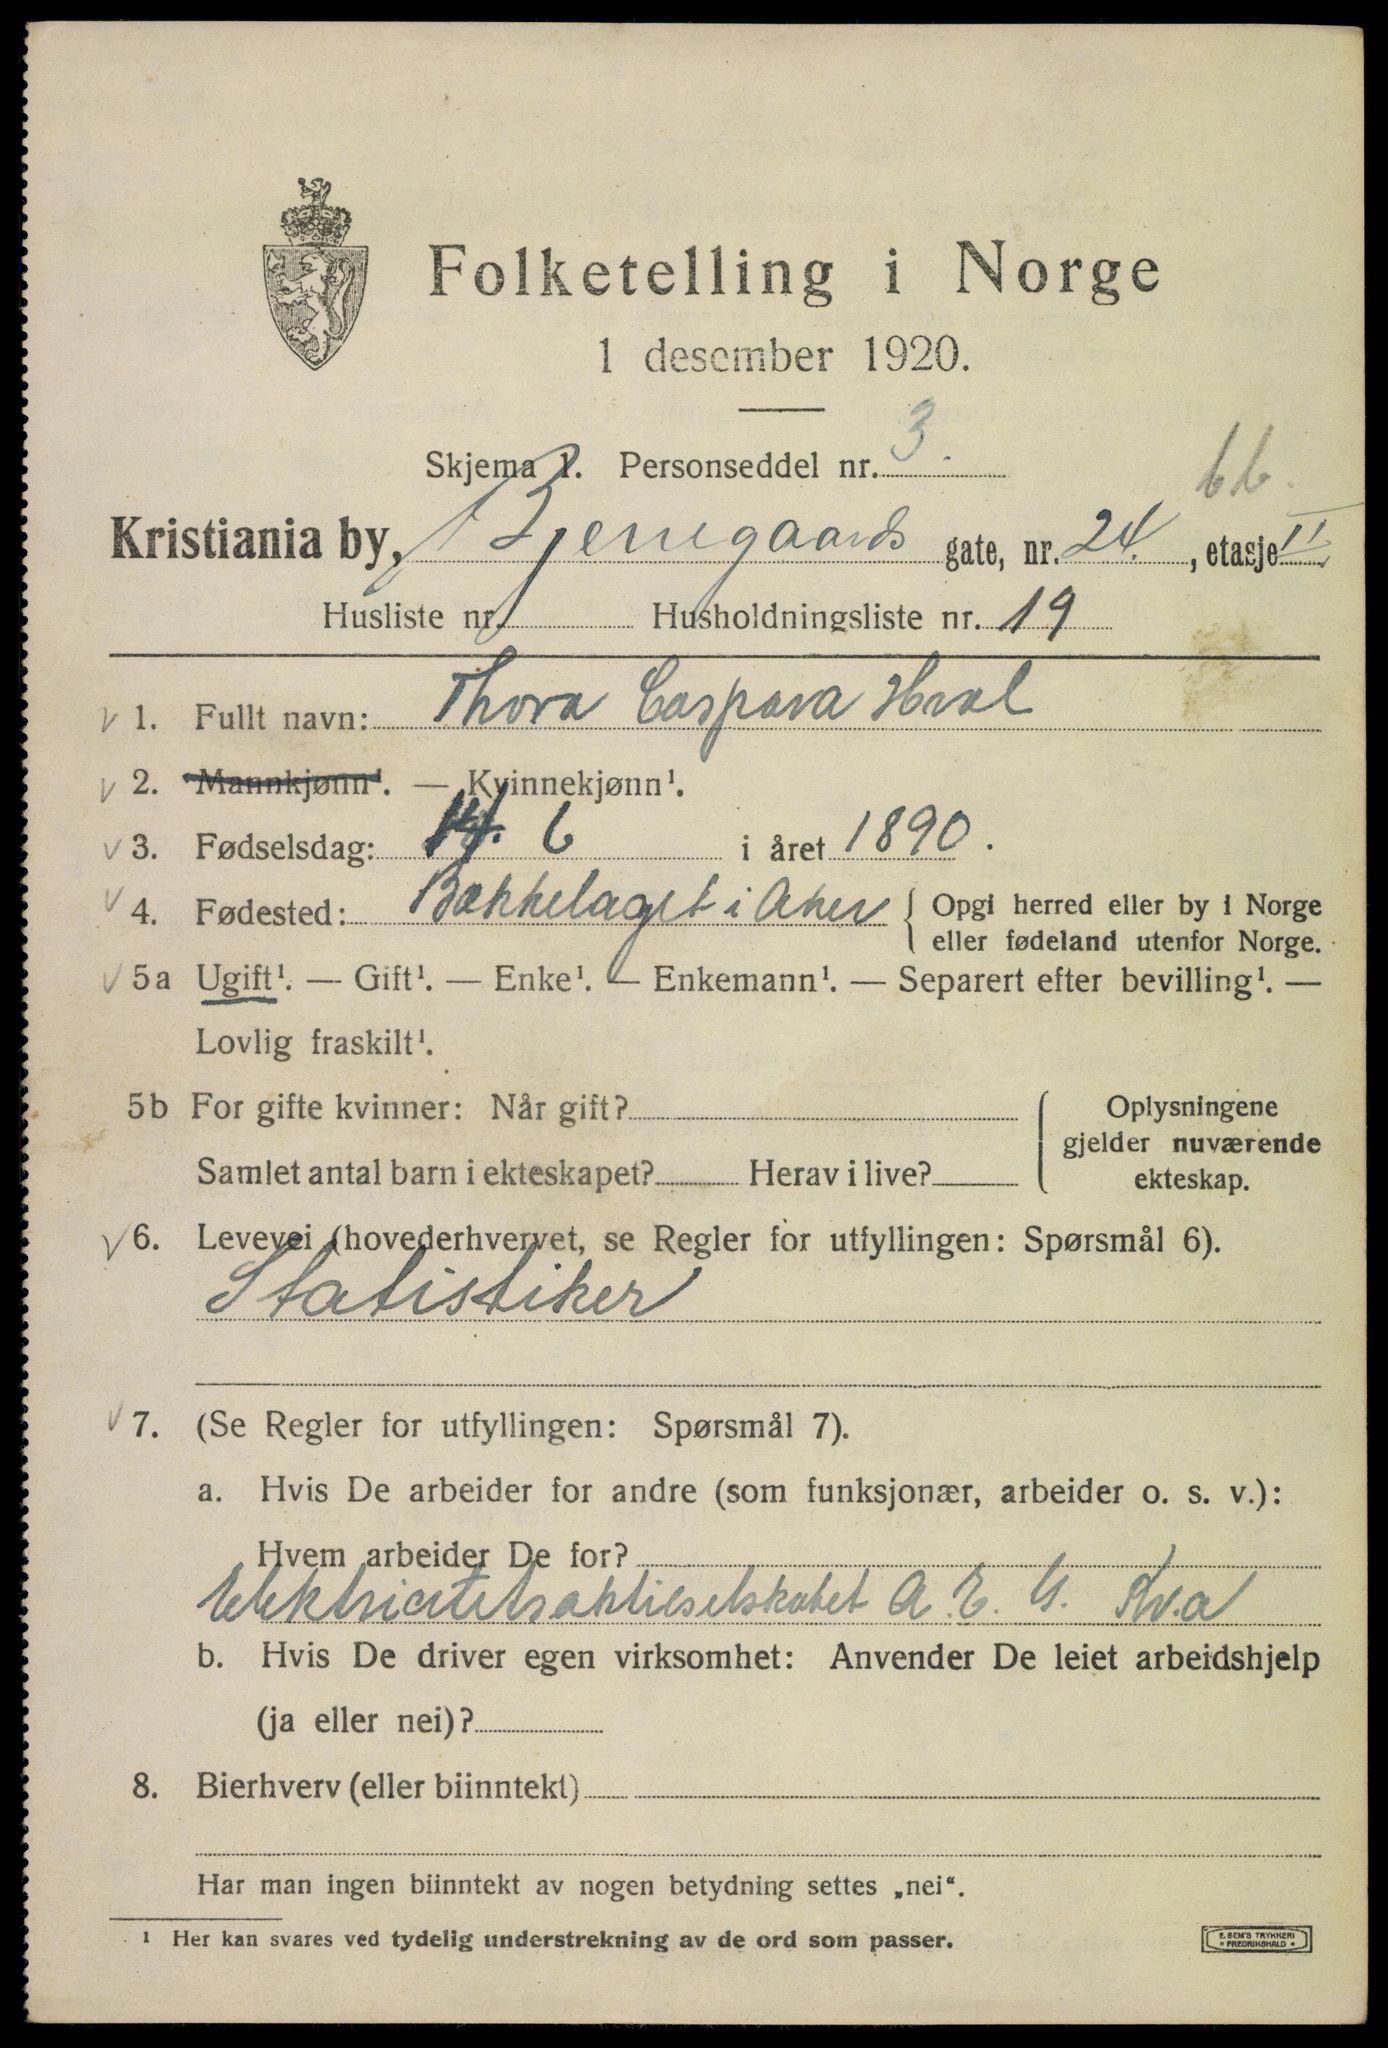 Folketelling i Norge
1 desember 1920.
Skjema 1. Personseddel nr. 3.
66.
Kristiania by, Bjerregaards gate, nr. 24. , etasje II
Husliste nr. Husholdningsliste nr. 19
1. Fullt navn: Thora Caspara Hval
2. Mannkjønn¹. — Kvinnekjønn¹.
3. Fødselsdag: 14. 6 i året 1890.
4. Fødested: Bækkelaget i Aker { Opgi herred eller by i Norge
eller fødeland utenfor Norge.
5a Ugift¹. — Gift¹. — Enke¹. — Enkemann¹. — Separert efter bevilling¹. —
Lovlig fraskilt¹.
5b For gifte kvinner: Når gift? { Oplysningene
gjelder nuværende
Samlet antal barn i ekteskapet? Herav i live? ekteskap.
6. Levevei (hovederhvervet, se Regler for utfyllingen: Spørsmål 6).
Statistiker
7. (Se Regler for utfyllingen: Spørsmål 7).
a. Hvis De arbeider for andre (som funksjonær, arbeider o. s. v.):
Hvem arbeider De for?
Elektricitetsaktieselskabet A. E. G. Kr.a
b. Hvis De driver egen virksomhet: Anvender De leiet arbeidshjelp
(ja eller nei)?
8. Bierhverv (eller biinntekt)
Har man ingen biinntekt av nogen betydning settes „nei“.
¹ Her kan svares ved tydelig understrekning av de ord som passer.
E. SEM'S TRYKKERI
* FREDRIKSHALD *